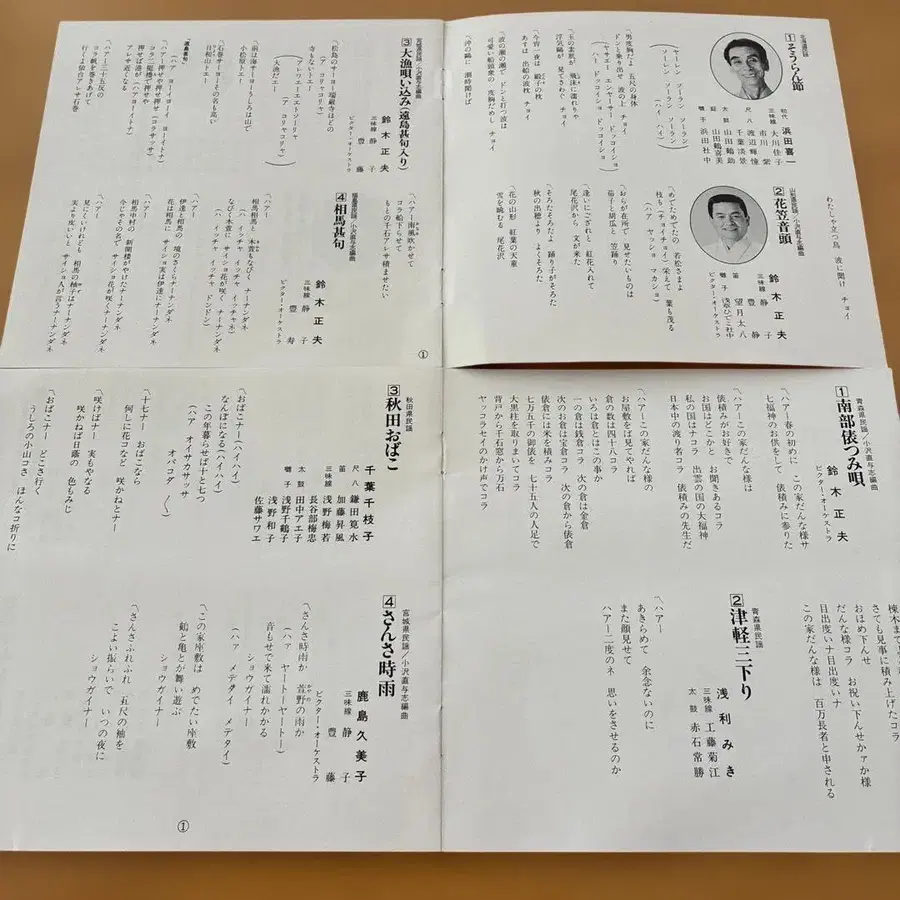 北海道民謡
1 そうらん節
初代 浜田喜一
三味線 大川佳子
市川紫
尺八 渡辺輝憧
千葉淡景
太鼓 山田鶴助
鉦 山田鶴喜美
囃子 浜田社中
〽ヤーレン ソーラン ソーラン
ソーレン ソーラン ソーラン
(ハイ ハイ)
〽男度胸だよ 五尺の身体
ドンと乗り出せ 波の上 チョイ
(ヤサエー エンヤーサー ドッコイショ
ハー ドッコイショ ドッコイショ)
〽玉の素肌が 飛沫に濡れりゃ
浮気鷗が 見てさわぐ チョイ
〽今宵一夜は 緞子の枕
あすは 出船の波枕 チョイ
〽波の瀬の瀬で ドンと打つ波は
可愛い船頭衆の 度胸だめし チョイ
〽沖の鷗に 潮時聞けば
わたしゃ立つ鳥 波に聞け チョイ
山形県民謡/小沢直与志編曲
2 花笠音頭
鈴木正夫
三味線 静子
豊静
笛 望月太八
囃子 浅草ひでこ社中
ビクター・オーケストラ
〽めでためでたの 若松さまよ
枝も(チョイチョイ)栄えて 葉も茂る
(ハア ヤッショ マカショ)
〽おらが在所で 見せたいものは
茄子と胡瓜と 笠踊り
〽逢いにござれと 紅花入れて
尾花沢から 文が来た
〽そろたそろたよ 踊り子がそろた
秋の出穂より よくそろた
〽花の山形 紅葉の天童
雪を眺むる 尾花沢
宮城県民謡/小沢直与志編曲
3 大漁唄い込み(遠島甚句入り)
鈴木正夫
三味線 静子
豊藤
ビクター・オーケストラ
〽松島のサーヨー瑞巌寺ほどの
(アリャコリャ)
寺もないトエー
(アレワエーエエトソーリャ
大漁だエー)
〽前は海サーヨーうしろは山で
小松原トエー
〽石巻サーヨーその名も高い
日和山トエー
「遠島甚句」
〽(ハアー イヨーイ ヨーイトナ)
ハアー押せや押せ押せ(コラサッサ)
ハアー押せ押せや
押せば港が(ハアヨーイトナ)
アレサ近くなる
〽ハアー三十五反の
コラ帆を巻きあげて
行くよ仙台アレサ石巻
〽ハアー南風吹かせて
コラ船下らせて
もとの千石アレサ積ませたい
福島県民謡/小沢直与志編曲
4 相馬甚句
鈴木正夫
三味線 静子
豊寿
ビクター・オーケストラ
〽ハアー
相馬相馬と 木萱もなびく ナーナンダネ
(ハ イッチャ イッチャ イッチャネ)
なびく木萱に サイショ花が咲くナーナンダネ
(ハ イッチャ イッチャ ドンドン)
〽ハアー
伊達と相馬の 境のさくらナーナンダネ
花は相馬に サイショ実は伊達にナーナンダネ
〽ハアー
相馬中村の 新開楼がやけたナーナンダネ
〽ハアー
見にくいけれども 相馬の柚子はナーナンダネ
実より皮いいと サイショ人が言うナーナンダネ
①
青森県民謡/小沢直与志編曲
1 南部俵つみ唄
鈴木正夫
ビクター・オーケストラ
〽ハアー春の初めに この家だんな様サ
七福神のお供をして 俵積みに参りた
〽ハアーこの家だんな様は
俵積みがお好きで
お国はどこかと お聞きあるコラ
私の国はナコラ 出雲の国の大福神
日本中の渡り者コラ 俵積みの先生だ
〽ハアーこの家だんな様の
お屋敷をば見てやれば
倉の数は四十八コラ
いろは倉とはこの事か
一の倉は銭倉コラ 次の倉は金倉
次のお倉は宝倉コラ 次の倉から俵倉
俵倉には米を積みコラ
七万五千の御俵を 七十五人の人足で
大黒柱を取りまいてコラ
背戸から千石窓から万石
ヤッコラセイのかけ声でコラ
さても見事に積み上げたコラ
おほめ下んせ お祝い下んせかァか様
だんな様コラ
目出度いナ目出度いナ
この家だんな様は 百万長者と申される
青森県民謡
2 津軽三下り
浅利みき
三味線 工藤菊江
太鼓 赤石常勝
〽ハアー
あきらめて 余念ないのに
また顔見せて
ハアー二度のネ 思いをさせるのか
秋田県民謡
3 秋田おばこ
千葉千枝子
尺八 鎌田寛水
笛 加藤昇風
三味線 浅野梅若
長谷部梅忠
太鼓 田中アエ子
囃子 浅野千鶴子
浅野和子
佐藤サワエ
〽おばこナー(ハイハイ)
なんぼになる(ハイハイ)
この年暮らせば十と七つ
(ハア オイサカサッサ
オバコダ 〱)
〽十七ナー おばこなら
何しに花コなど 咲かねとナー
〽咲けばナー 実もやなる
咲かねば日蔭の 色もみじ
〽おばこナー どこさ行く
うしろの小山コさ ほんなコ折りに
宮城県民謡/小沢直与志編曲
4 さんさ時雨
鹿島久美子
三味線 静子
豊藤
ビクター・オーケストラ
〽さんさ時雨か 萱野の雨か
(ハァ ヤートーヤートー)
音もせで来て濡れかかる
ショウガイナー
(ハァ メデタイ メデタイ)
〽この家座敷は めでたい座敷
鶴と亀とが舞い遊ぶ
ショウガイナー
〽さんさふれふれ 五尺の袖を
こよい振らいで いつの夜に
ショウガイナー
①